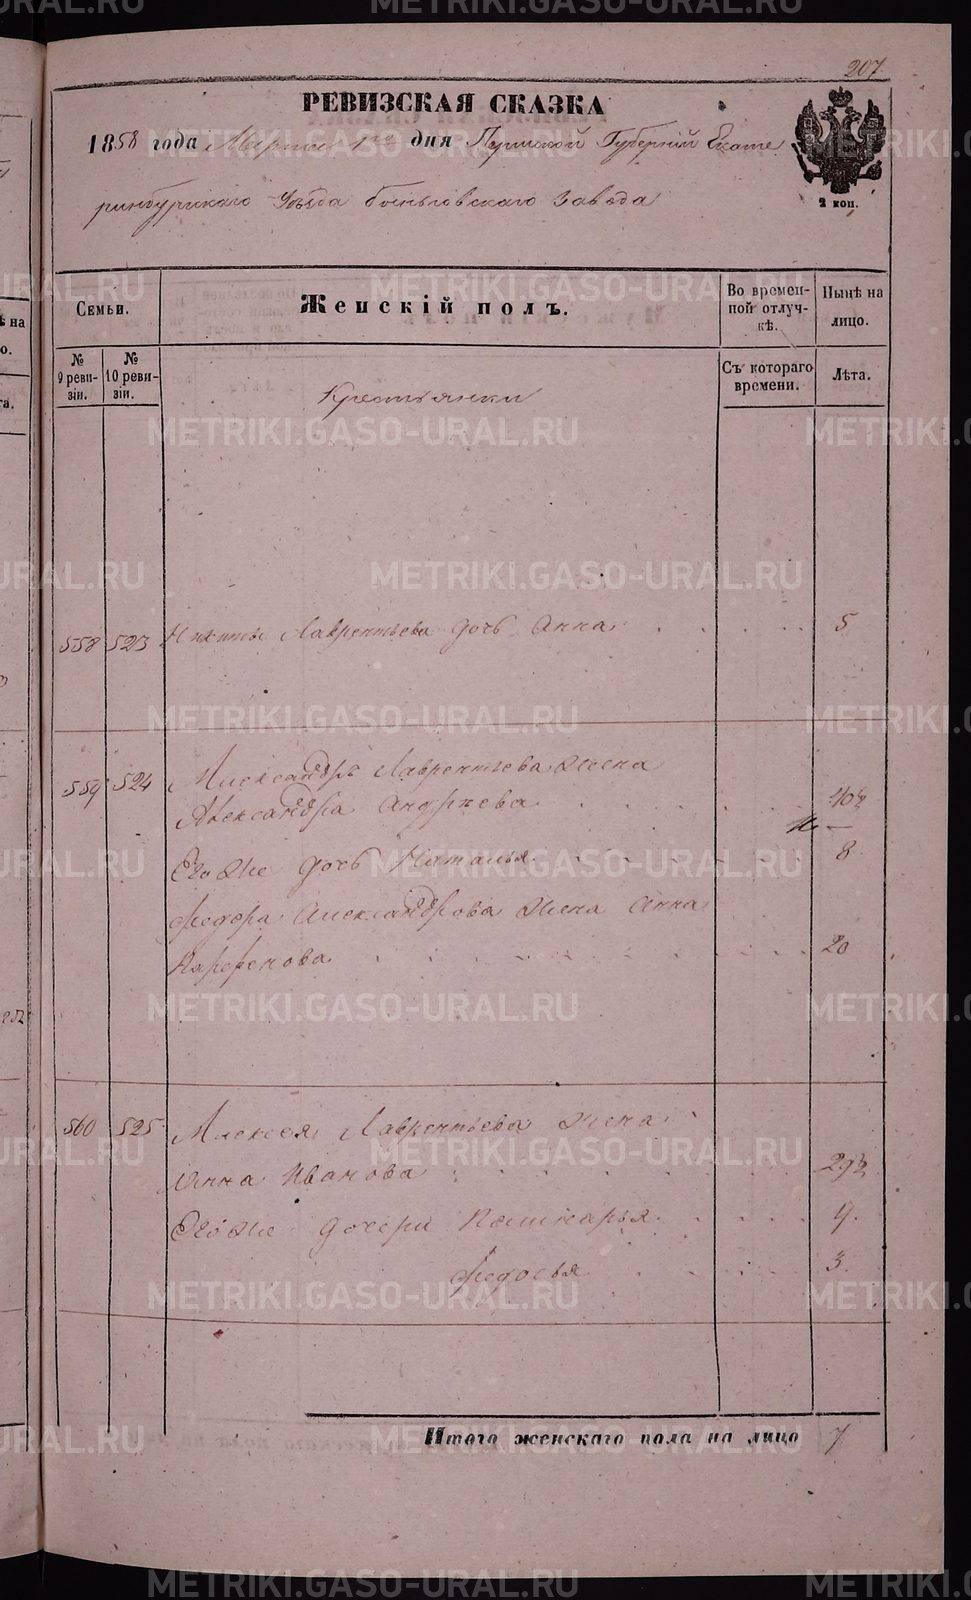 207
РЕВИЗСКАЯ СКАЗКА
1858 года Марта 1го дня Пермской Губерніи Екате
ринбургскаго Уѣзда Завода
2 коп.
Семьи.
Женскій полъ.
Во времен-
ной отлуч-
кѣ.
Нынѣ на
лицо.
№
9 реви-
зіи.
№
10 реви-
зіи.
Съ котораго
времени.
Лѣта.
Крестьянки
558 523 Никиты Лаврентьева дочь Анна 5
559 524 Александръ Лаврентьева жена
Александра Андреева 40½
Его же дочь Наталья 8
Федора Александрова жена Анна
Парфенова 20
560 525 Алексея Лаврентьева жена
Анна Иванова 29½
Его же дочери 9
Федосья 3
Итого женскаго пола на лицо 7
METRIKI.GASO-URAL.RU